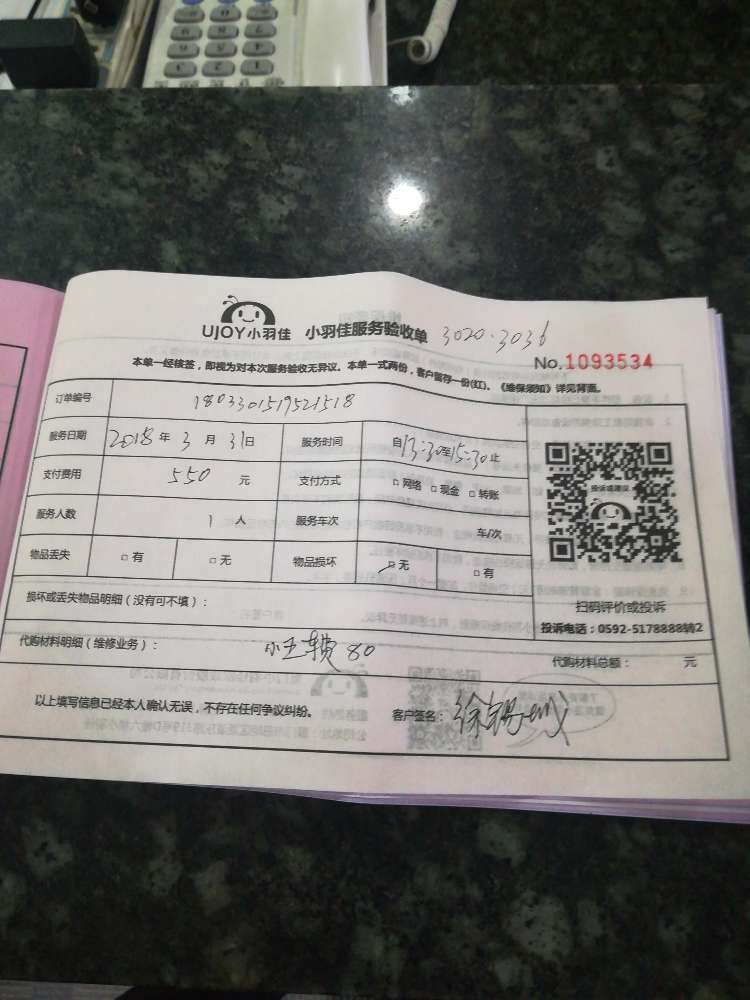 UJOY小羽佳 小羽佳服务验收单 3020·3036
No.1093534
本单一经核签，即视为对本次服务验收无异议。本单一式两份，客户留存一份(红)。《维保须知》详见背面。
订单编号 1803301519521518
服务日期 2018年 3月 31日 服务时间 自13:30至15:30止
支付费用 550 元 支付方式 □网络 □现金 □转账
投诉或建议
服务人数 1人 服务车次 车/次
物品丢失 □有 □无 物品损坏 □无 □有
损坏或丢失物品明细（没有可不填）：
扫码评价或投诉
投诉电话：0592-5178888转2
代购材料明细（维修业务）： 80
代购材料总额： 元
以上填写信息已经本人确认无误，不存在任何争议纠纷。 客户签名：